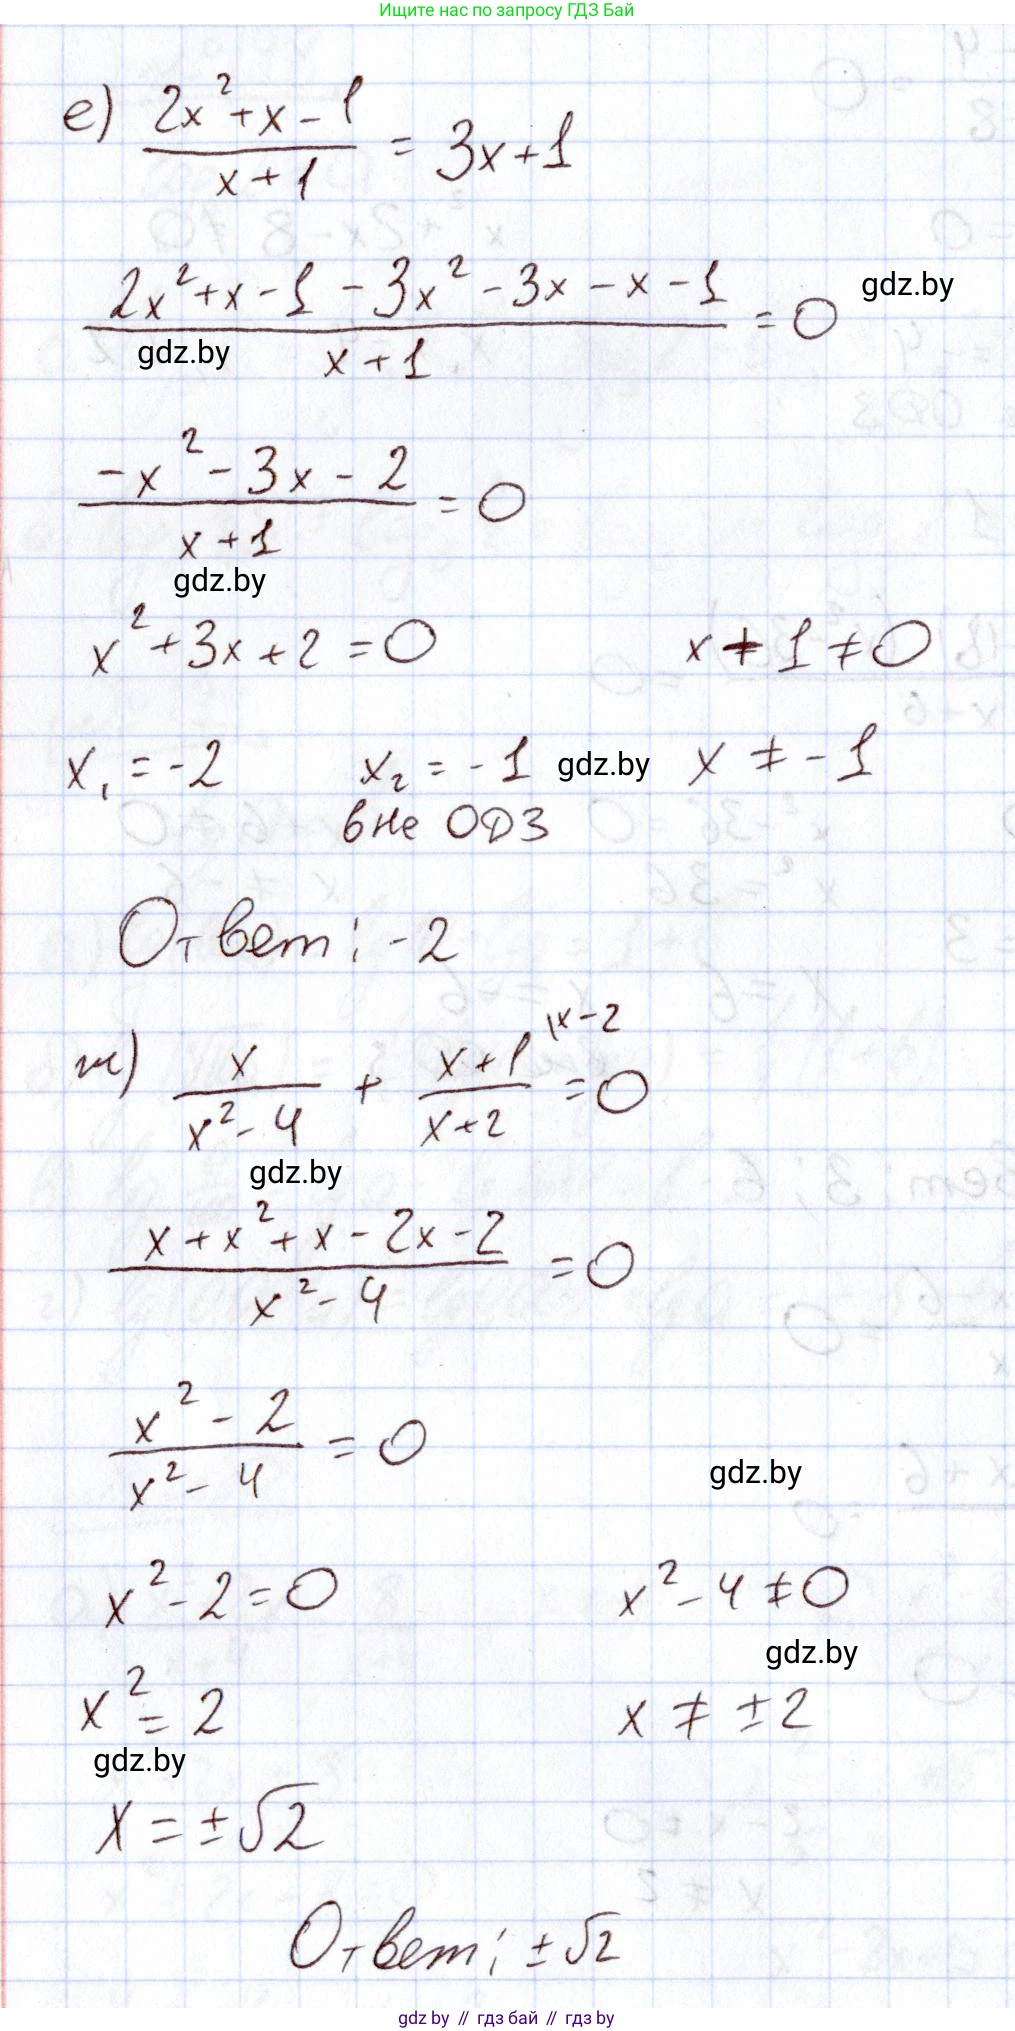 Ищите нас по запросу ГДЗ Бай
е) (2x²+x-1)/(x+1) = 3x+1
(2x²+x-1-3x²-3x-x-1)/(x+1) = 0
gdz.by
gdz.by
(-x²-3x-2)/(x+1) = 0
gdz.by
x²+3x+2=0 x+1≠0
x₁=-2 x₂=-1 gdz.by x≠-1
вне ОДЗ
Ответ: -2
ж) x/(x²-4) + (x+1)/(x+2) \x-2 = 0
gdz.by
(x+x²+x-2x-2)/(x²-4) = 0
(x²-2)/(x²-4) = 0
gdz.by
x²-2=0 x²-4≠0
gdz.by
x²=2 x≠±2
gdz.by
x=±√2
Ответ: ±√2
gdz.by // гдз бай // гдз by